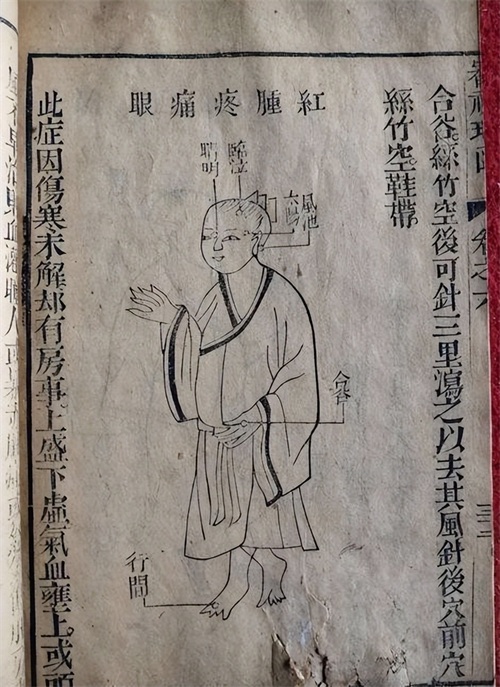 卷之六
合谷。絲竹空後可針三里瀉之以去其風針後穴前穴
絲竹空鞋帶
紅腫疼痛眼
風池
太陽
臨泣
睛明
合谷
行間
此症因傷寒未解却有房事上盛下虛氣血壅上。或頭